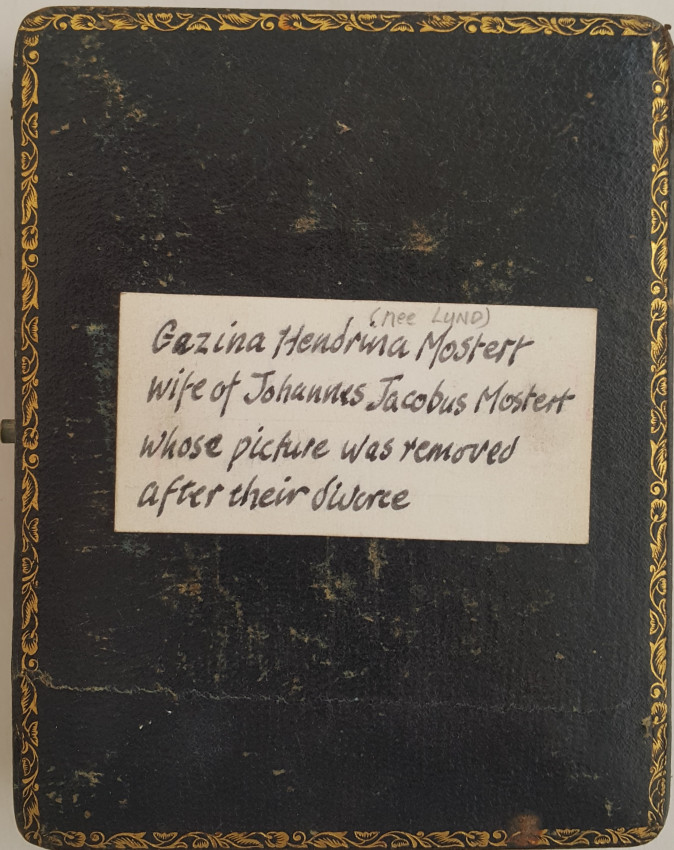 (nee LYND)
Gazina Hendrina Mostert
wife of Johannes Jacobus Mostert
whose picture was removed
after their divorce